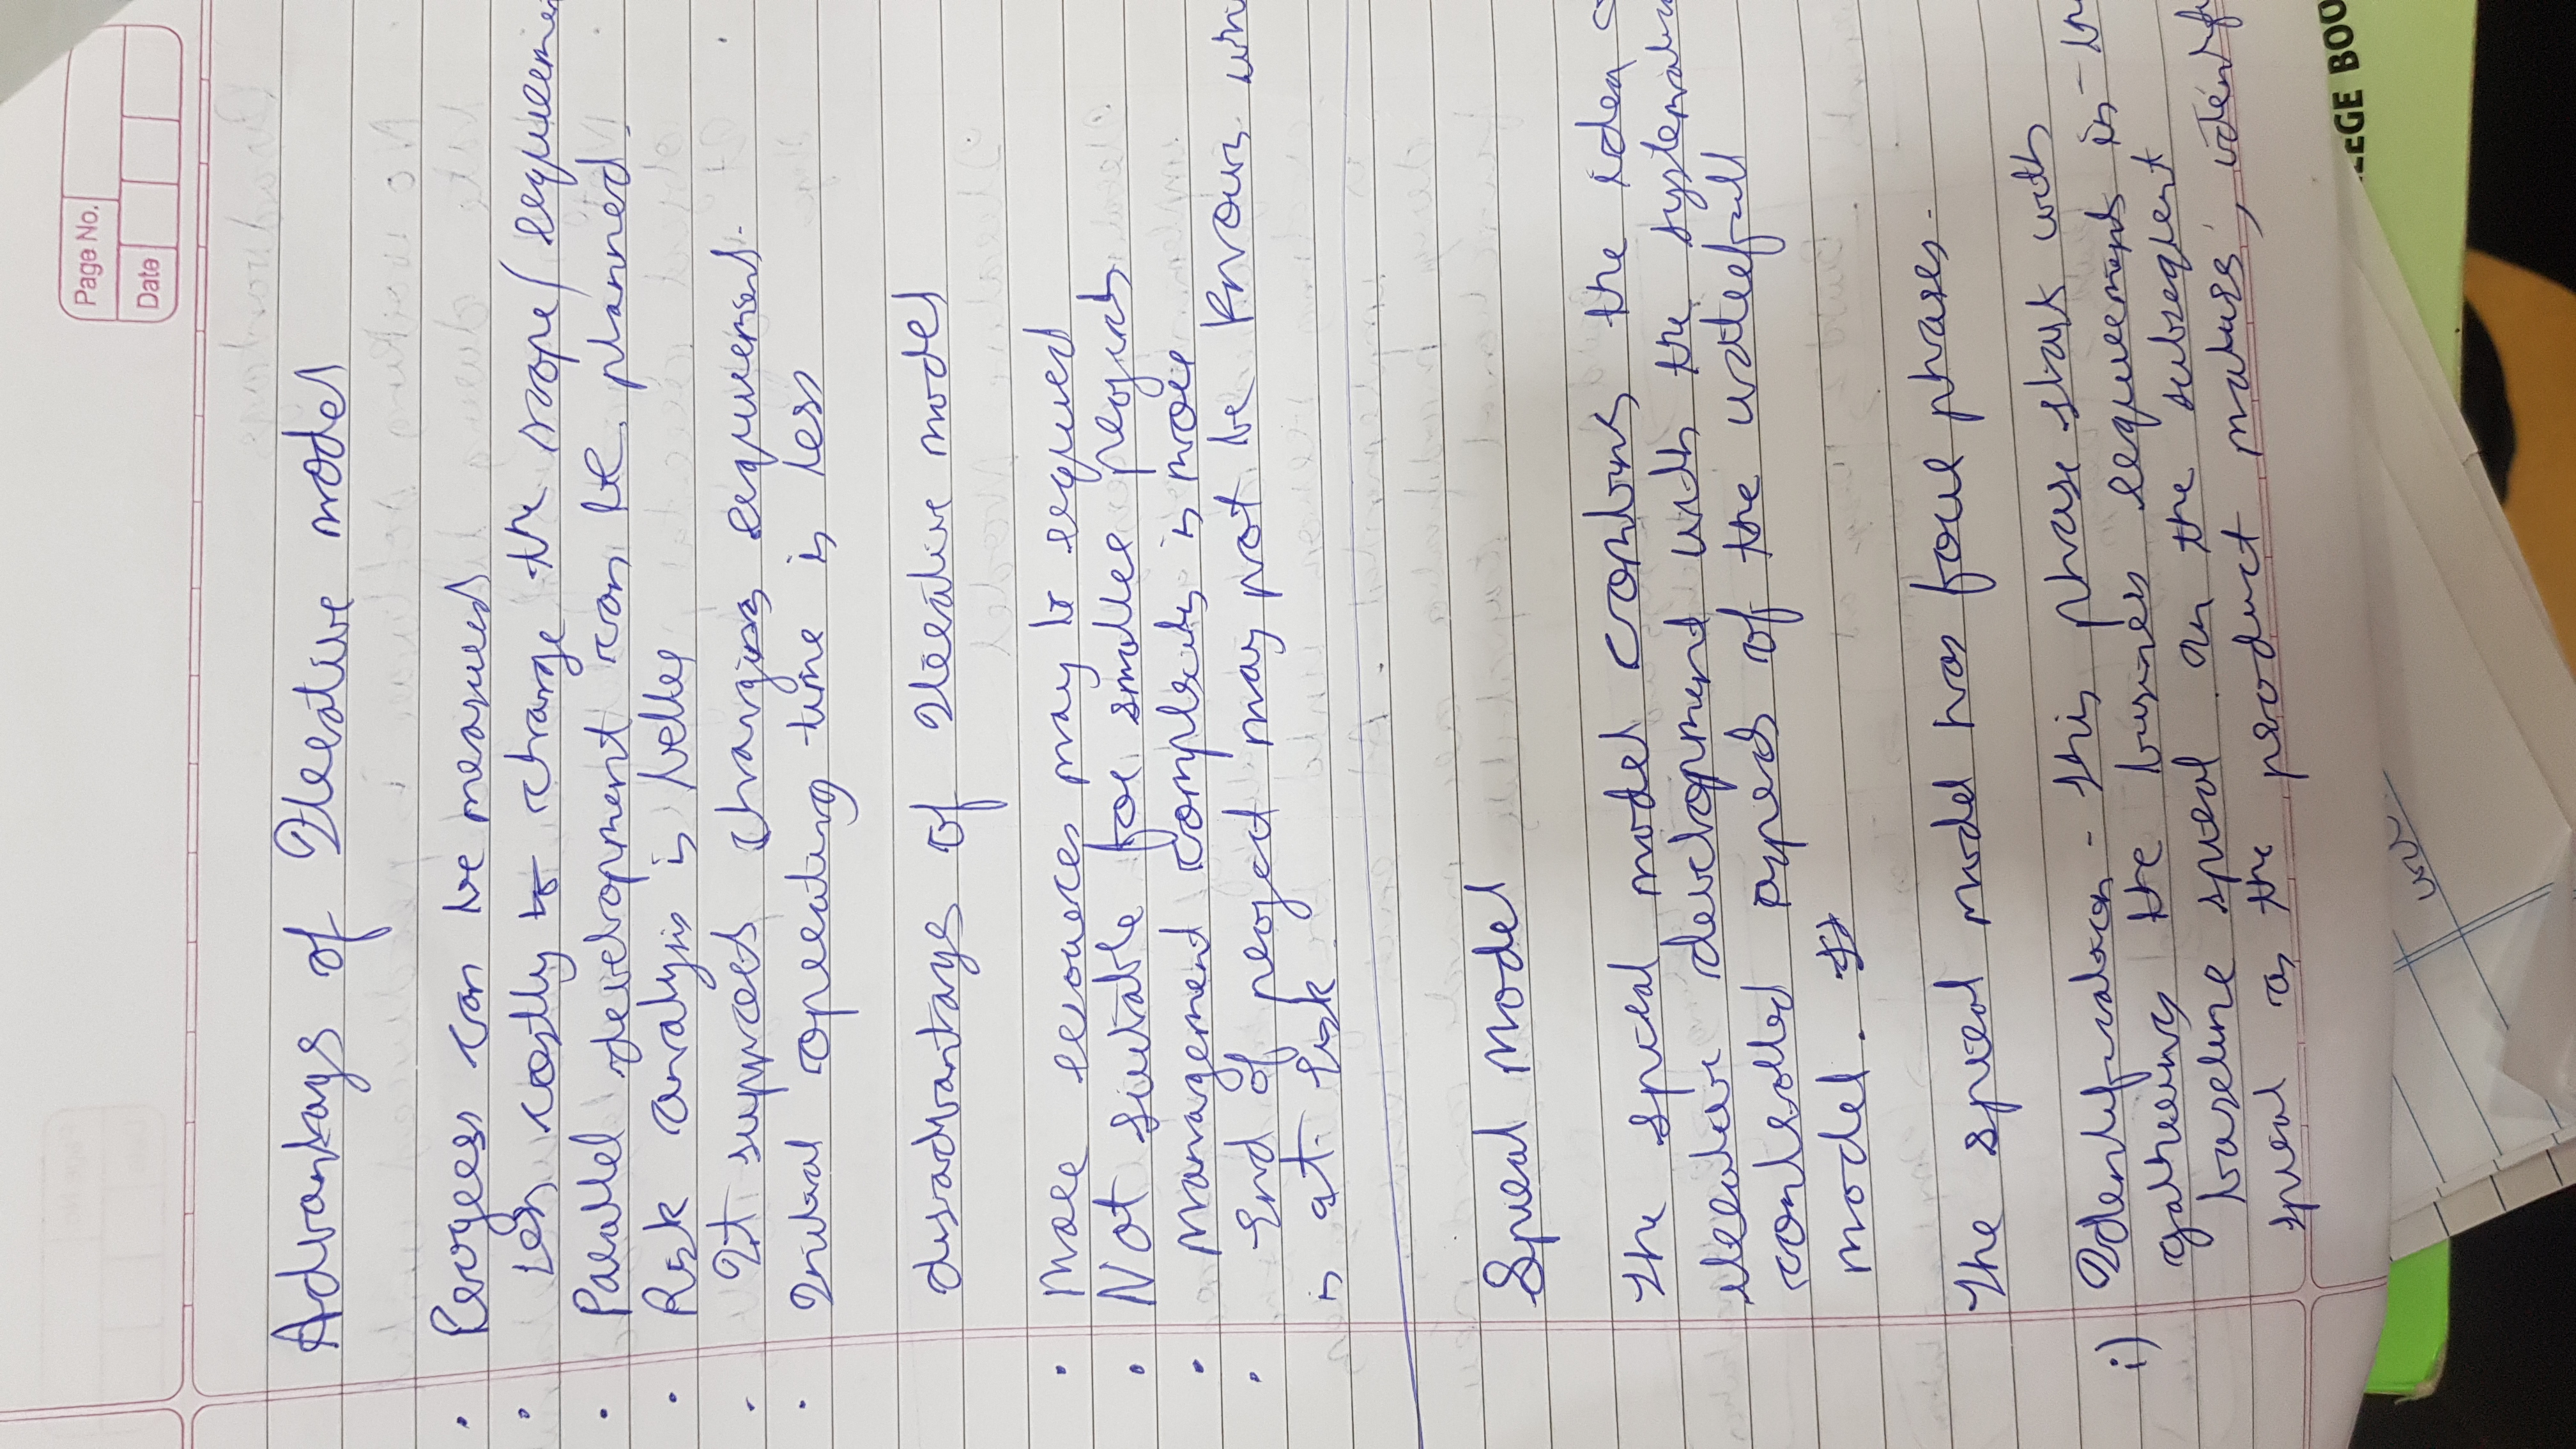 Page No.
Date
Advantags of Iterative model
· Progress can be measured
· Less costly to change the scope/
· Parallel development can be planned.
· Risk analysis is better
· It supports changing requirement.
· Initial operating time is less
disadvantags of Iterative model
· More resources may be required
· Not suitable for smaller projects
· Management complexity is more
· End of project may not be known
is at risk
Spiral Model
The spiral model combins the idea
iterative development with the
controlled aspects of the waterfall
model.
The spiral model has four phases.
i) Identification - This phase start with
gathering the business requirements in
baseline spiral. In the subseqlent
spiral as the product matures,
LEGE BOO